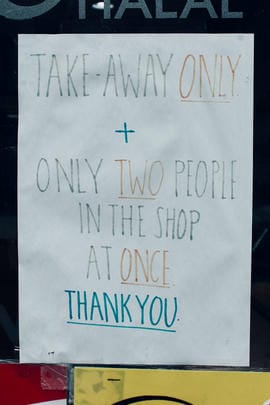 HALAL
TAKE-AWAY ONLY.
+
ONLY TWO PEOPLE
IN THE SHOP
AT ONCE.
THANK YOU.